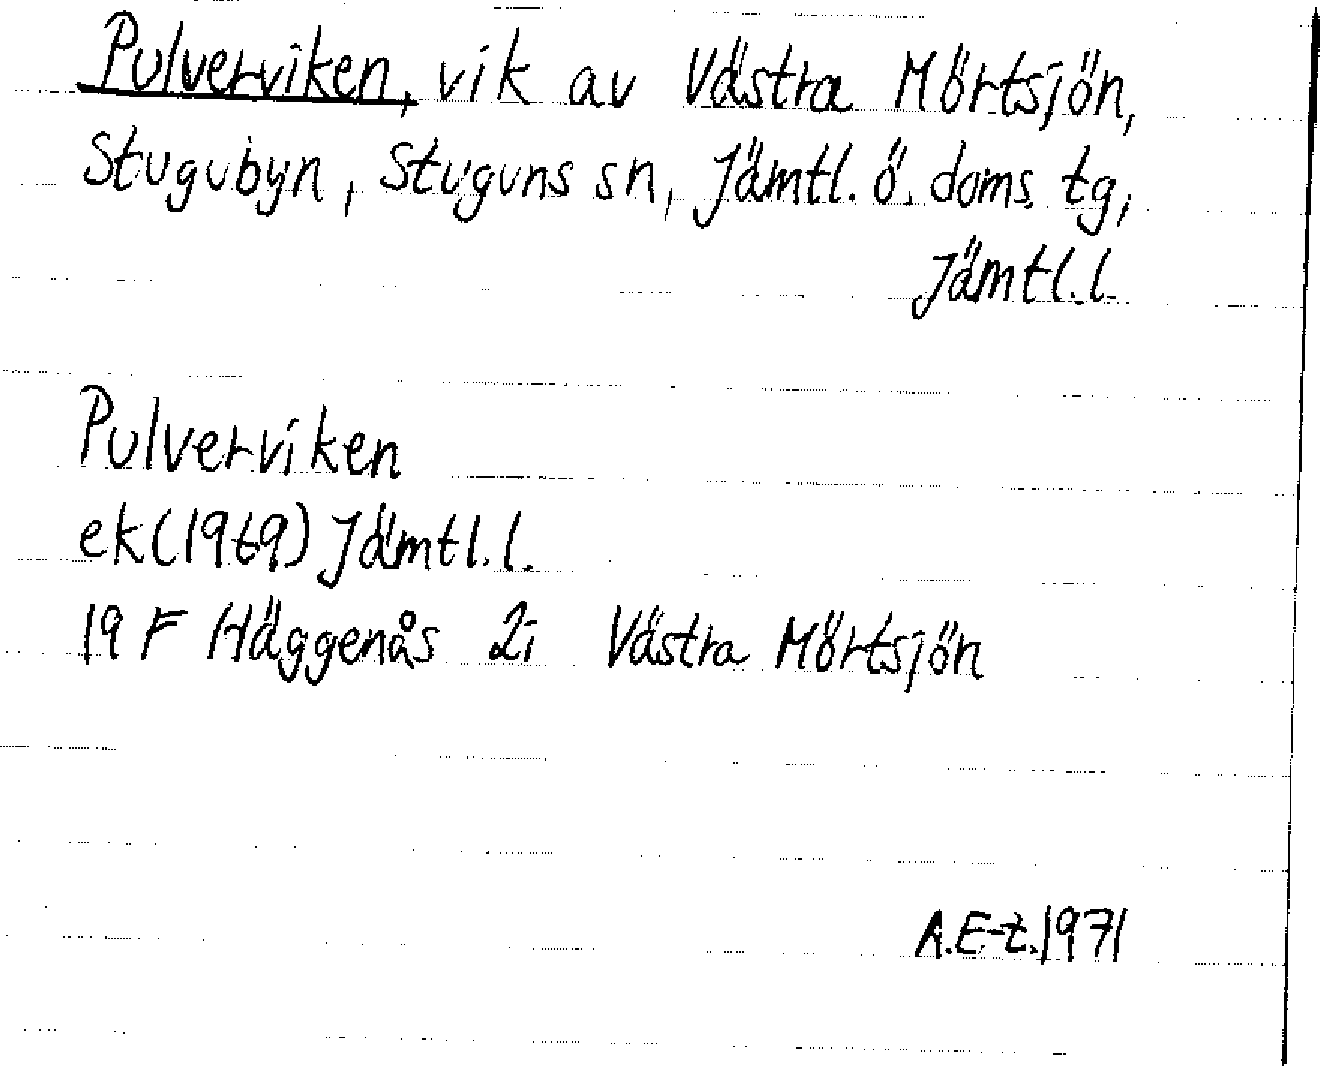 Pulverviken, vik av Västra Mörtsjön,
Stugubyn, Stuguns sn, Jämtl. ö. doms. tg,
Jämtl. l.
Pulverviken
ek (1969) Jämtl. l.
19 F Häggenås 2i Västra Mörtsjön
A. E-t. 1971